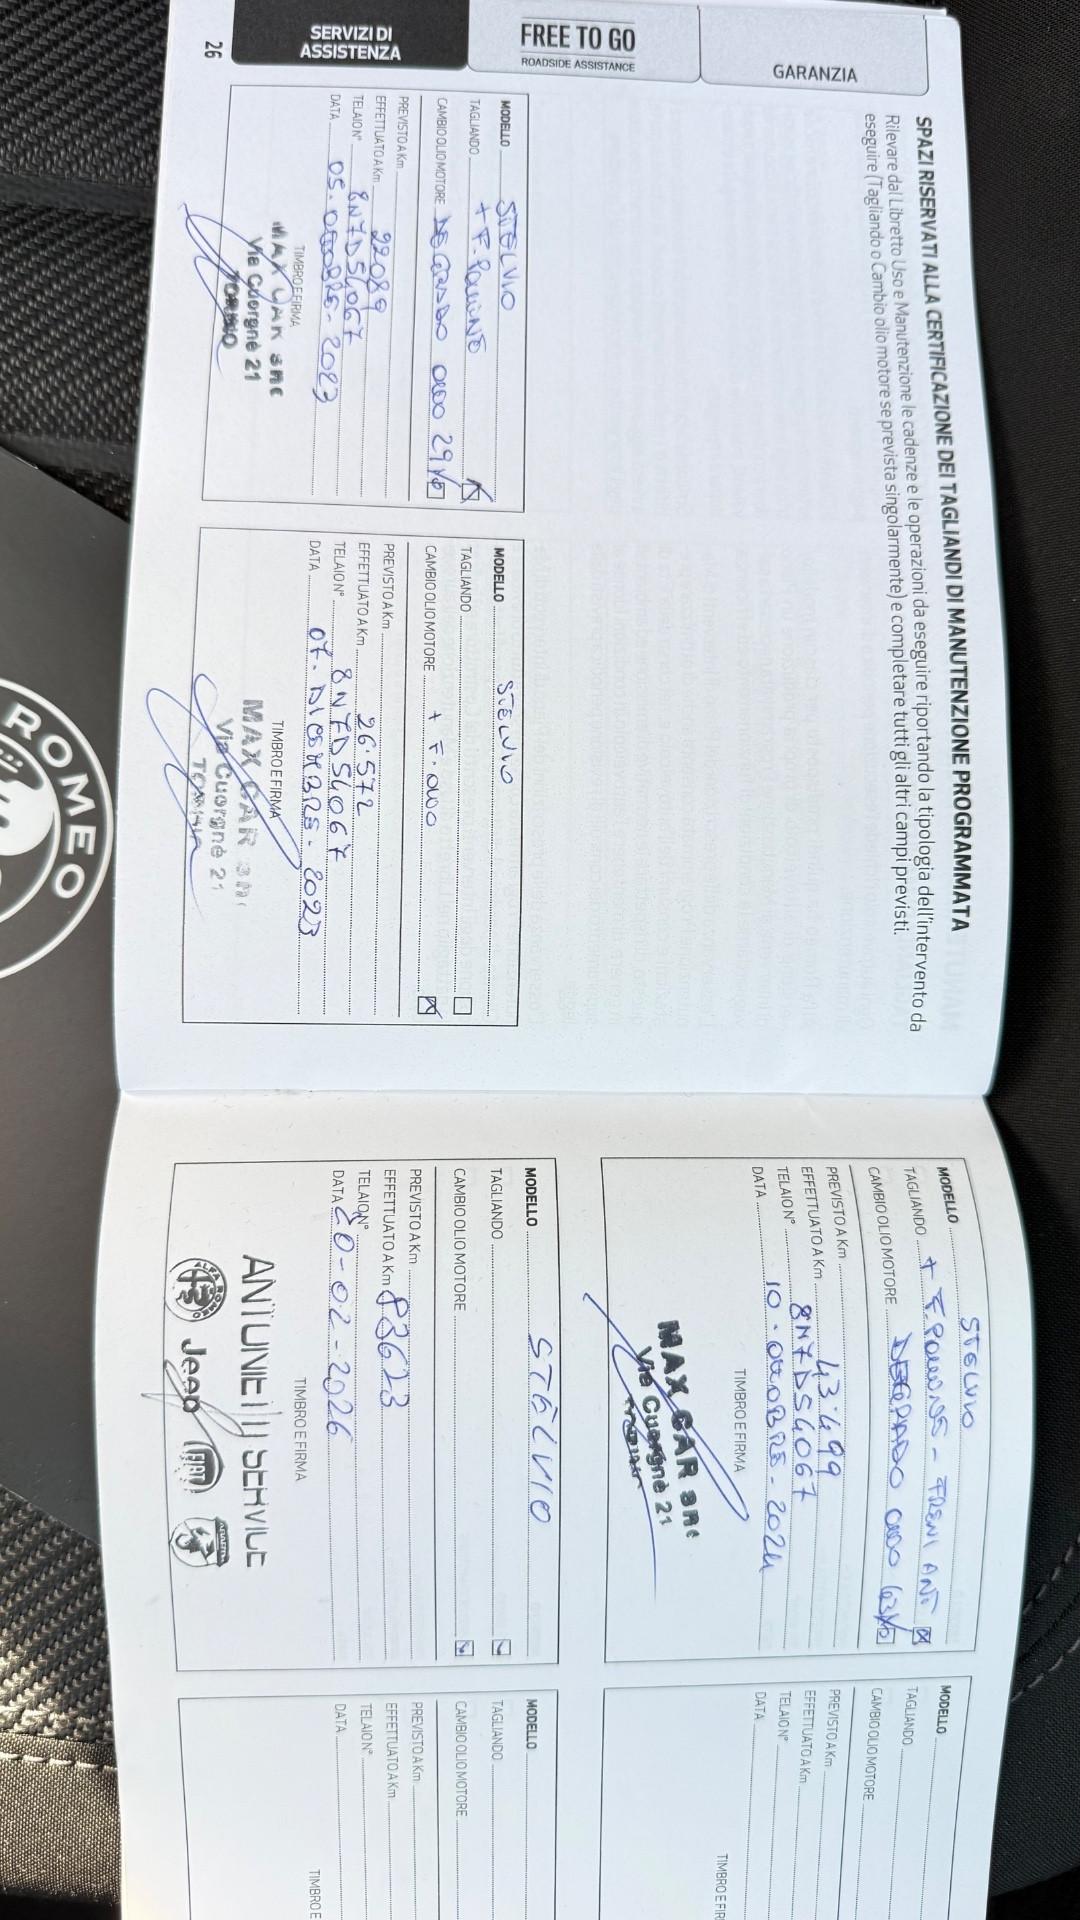 SERVIZI DI
ASSISTENZA
FREE TO GO
ROADSIDE ASSISTANCE
GARANZIA
26
SPAZI RISERVATI ALLA CERTIFICAZIONE DEI TAGLIANDI DI MANUTENZIONE PROGRAMMATA
Rilevare dal Libretto Uso e Manutenzione le cadenze e le operazioni da eseguire riportando la tipologia dell'intervento da
eseguire (Tagliando o Cambio olio motore se prevista singolarmente) e completare tutti gli altri campi previsti.
MODELLO STELVIO
TAGLIANDO + F.
CAMBIO OLIO MOTORE
PREVISTO A Km
EFFETTUATO A Km 22089
TELAIO N° 8N7D54067
DATA 05. 2023
TIMBRO E FIRMA
MAX CAR snc
Via Cuorgnè 21
TORINO
MODELLO STELVIO
TAGLIANDO
CAMBIO OLIO MOTORE + F. OLIO
PREVISTO A Km
EFFETTUATO A Km 26.572
TELAIO N° 8N7D54067
DATA 07. DICEMBRE. 2023
TIMBRO E FIRMA
MAX CAR snc
Via Cuorgnè 21
MODELLO STELVIO
TAGLIANDO + F. - FRENI ANT
CAMBIO OLIO MOTORE DEGRADO OLIO
PREVISTO A Km
EFFETTUATO A Km 43.499
TELAIO N° 8N7D54067
DATA 10. OTTOBRE. 2024
TIMBRO E FIRMA
MAX CAR snc
Via Cuorgnè 21
MODELLO STELVIO
TAGLIANDO
CAMBIO OLIO MOTORE
PREVISTO A Km
EFFETTUATO A Km 83623
TELAIO N°
DATA 20-02-2026
TIMBRO E FIRMA
ANTONELLI SERVICE
ALFA ROMEO Jeep FIAT ABARTH
MODELLO
TAGLIANDO
CAMBIO OLIO MOTORE
PREVISTO A Km
EFFETTUATO A Km
TELAIO N°
DATA
TIMBRO E FIR
MODELLO
TAGLIANDO
CAMBIO OLIO MOTORE
PREVISTO A Km
EFFETTUATO A Km
TELAIO N°
DATA
TIMBRO E
ROMEO